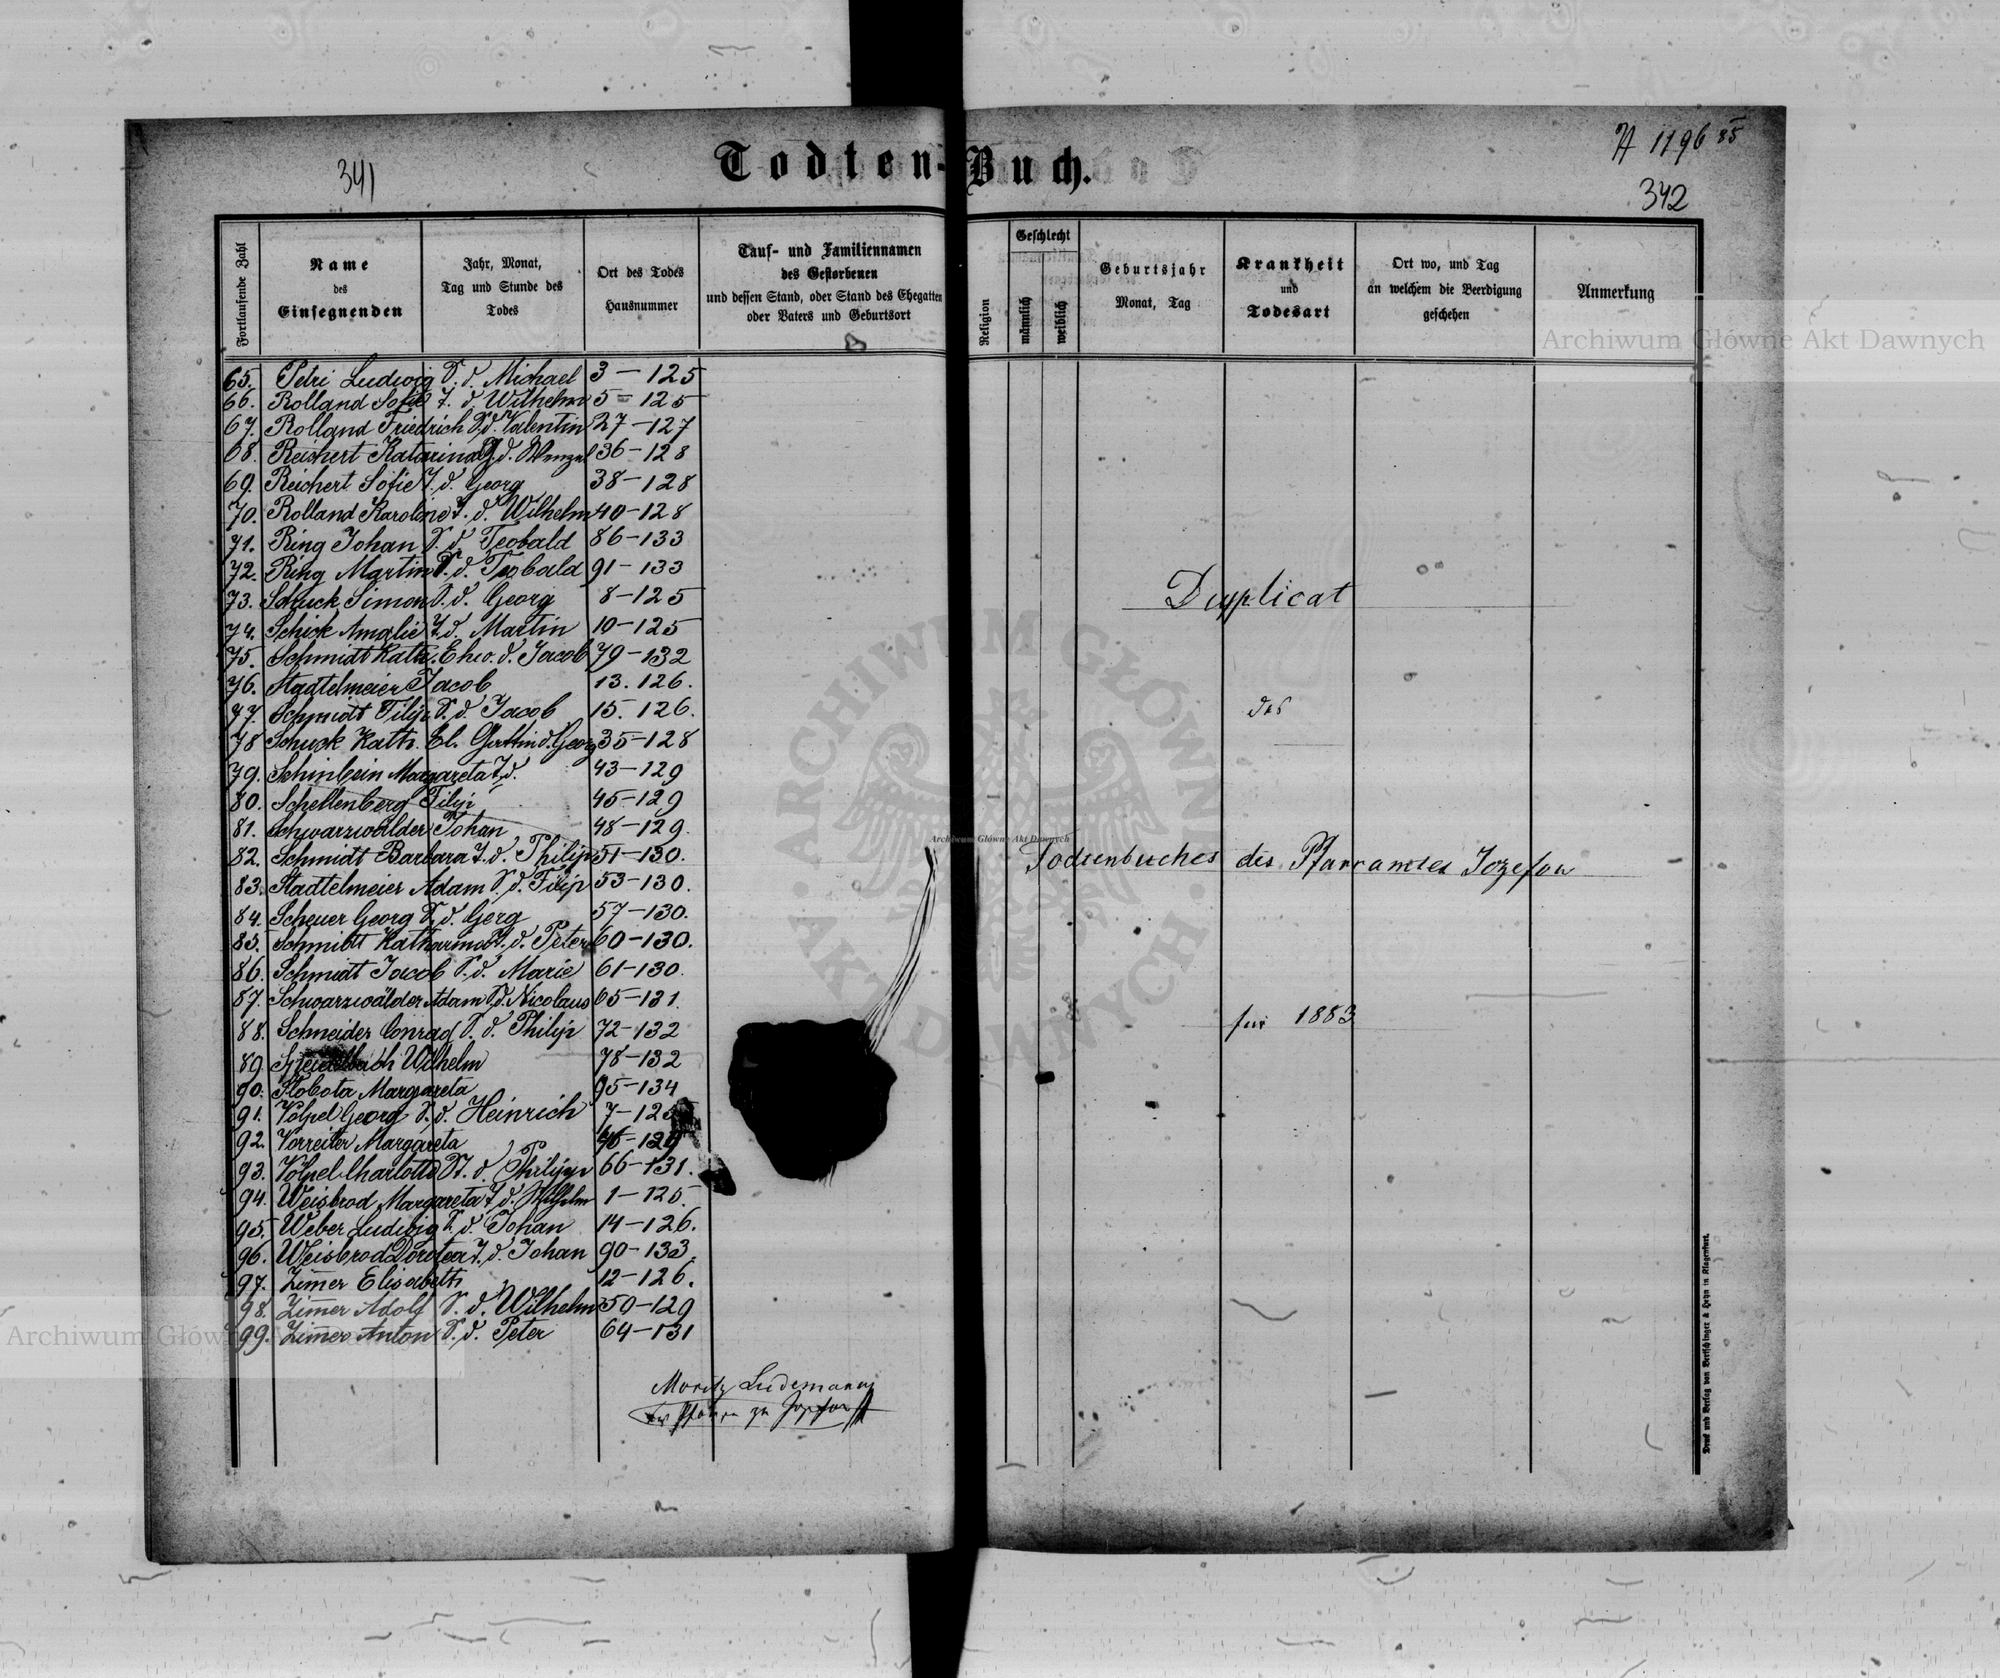 341
Todten-Buch.
A 1196 85
342
Fortlaufende Zahl
Name
des
Einsegnenden
Jahr, Monat,
Tag und Stunde des
Todes
Ort des Todes
Hausnummer
Tauf- und Familiennamen
des Gestorbenen
und dessen Stand, oder Stand des Ehegatten
oder Vaters und Geburtsort
Religion
Geschlecht
männlich
weiblich
Geburtsjahr
Monat, Tag
Krankheit
und
Todesart
Ort wo, und Tag
an welchem die Beerdigung
geschehen
Anmerkung
65. Petri Ludwig S. d. Michael 3-125
66. Rolland Sofie T. d. Wilhelm 5-125
67. Rolland Friedrich S. d. Valentin 27-127
68. Reichert Katarina T. d. Wenzel 36-128
69. Reichert Sofie T. d. Georg 38-128
70. Rolland Karoline T. d. Wilhelm 40-128
71. Ring Johan S. d. Teobald 86-133
72. Ring Martin S. d. Teobald 91-133
73. Schuck Simon S. d. Georg 8-125
74. Schick Amalie T. d. Martin 10-125
75. Schmidt Kath. Ehw. d. Jacob 79-132
76. Stadtelmeier Jacob 13. 126.
77. Schmidt Filip S. d. Jacob 15. 126.
78 Schuck Kath. El. Gattin d. Georg 35-128
79. Schinbein Margareta T. d. 43-129
80. Schellenberg Filip 45-129
81. Schwarzwälder Johan 48-129.
82. Schmidt Barbara T. d. Philip 51-130.
83. Stadtelmeier Adam S. d. Filip 53-130.
84. Scheuer Georg S. d. Gerg 57-130.
85. Schmidt Katharina T. d. Peter 60-130.
86. Schmidt Jacob S. d. Marie 61-130.
87. Schwarzwälder Adam S. d. Nicolaus 65-131.
88. Schneider Conrad S. d. Philip 72-132
89. Wilhelm 78-132
90. Slobota Margareta 95-134
91. Völpel Georg S. d. Heinrich 7-125
92. Vorreiter Margareta 46-129
93. Völpel Charlotte T. d. Philipp 66-131.
94. Weisbrod Margareta T. d. Wilhelm 1-125
95. Weber Ludwig S. d. Johan 14-126.
96. Weisbrod Dorotea T. d. Johan 90-133.
97. Zimer Elisabeth 12-126.
98. Zimer Adolf S. d. Wilhelm 50-129
99. Zimer Anton S. d. Peter 64-131
Moritz Ludemann
Duplicat
des
Todtenbuches des Pfarramtes Jozefow
für 1883
Druck und Verlag von Bertschinger & Heyn in Klagenfurt.
Archiwum Główne Akt Dawnych
Archiwum Główne Akt Dawnych
Archiwum Główn
ARCHIWUM GŁÓWNE AKT DAWNYCH